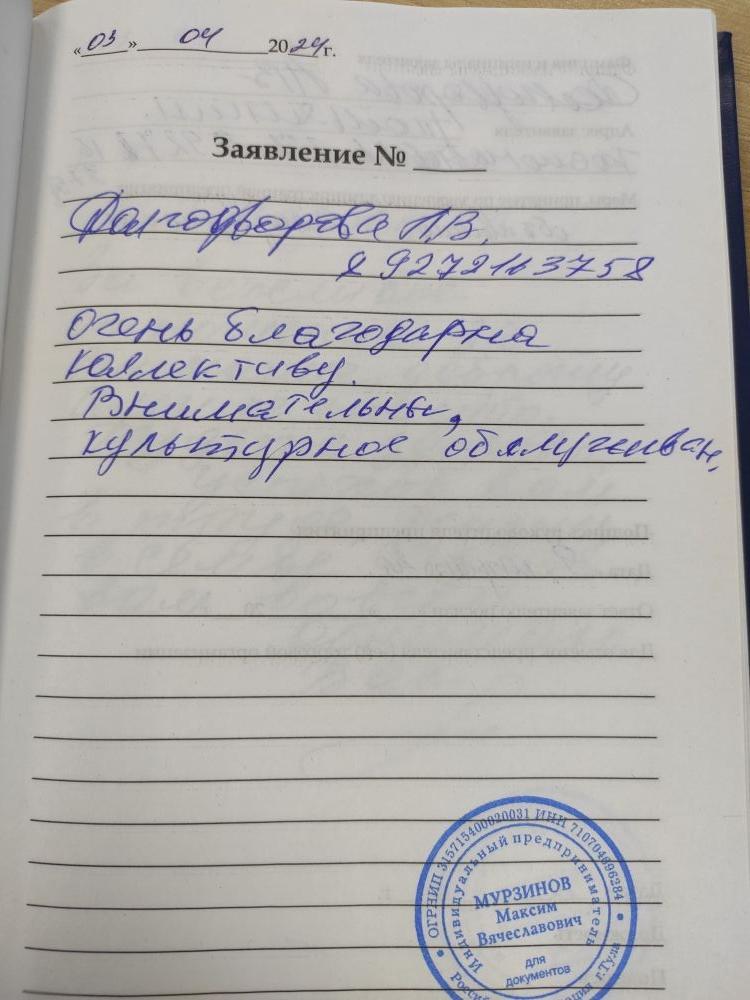 «03» 04 2024 г.
Заявление №
Долгодворова Л.В.
89272163758
очень благодарна
коллективу.
Внимательны,
культурное обслуживан,
ОГРНИП 315715400020031 ИНН 710704696284
Индивидуальный предприниматель
МУРЗИНОВ
Максим
Вячеславович
для
документов
г.Тула